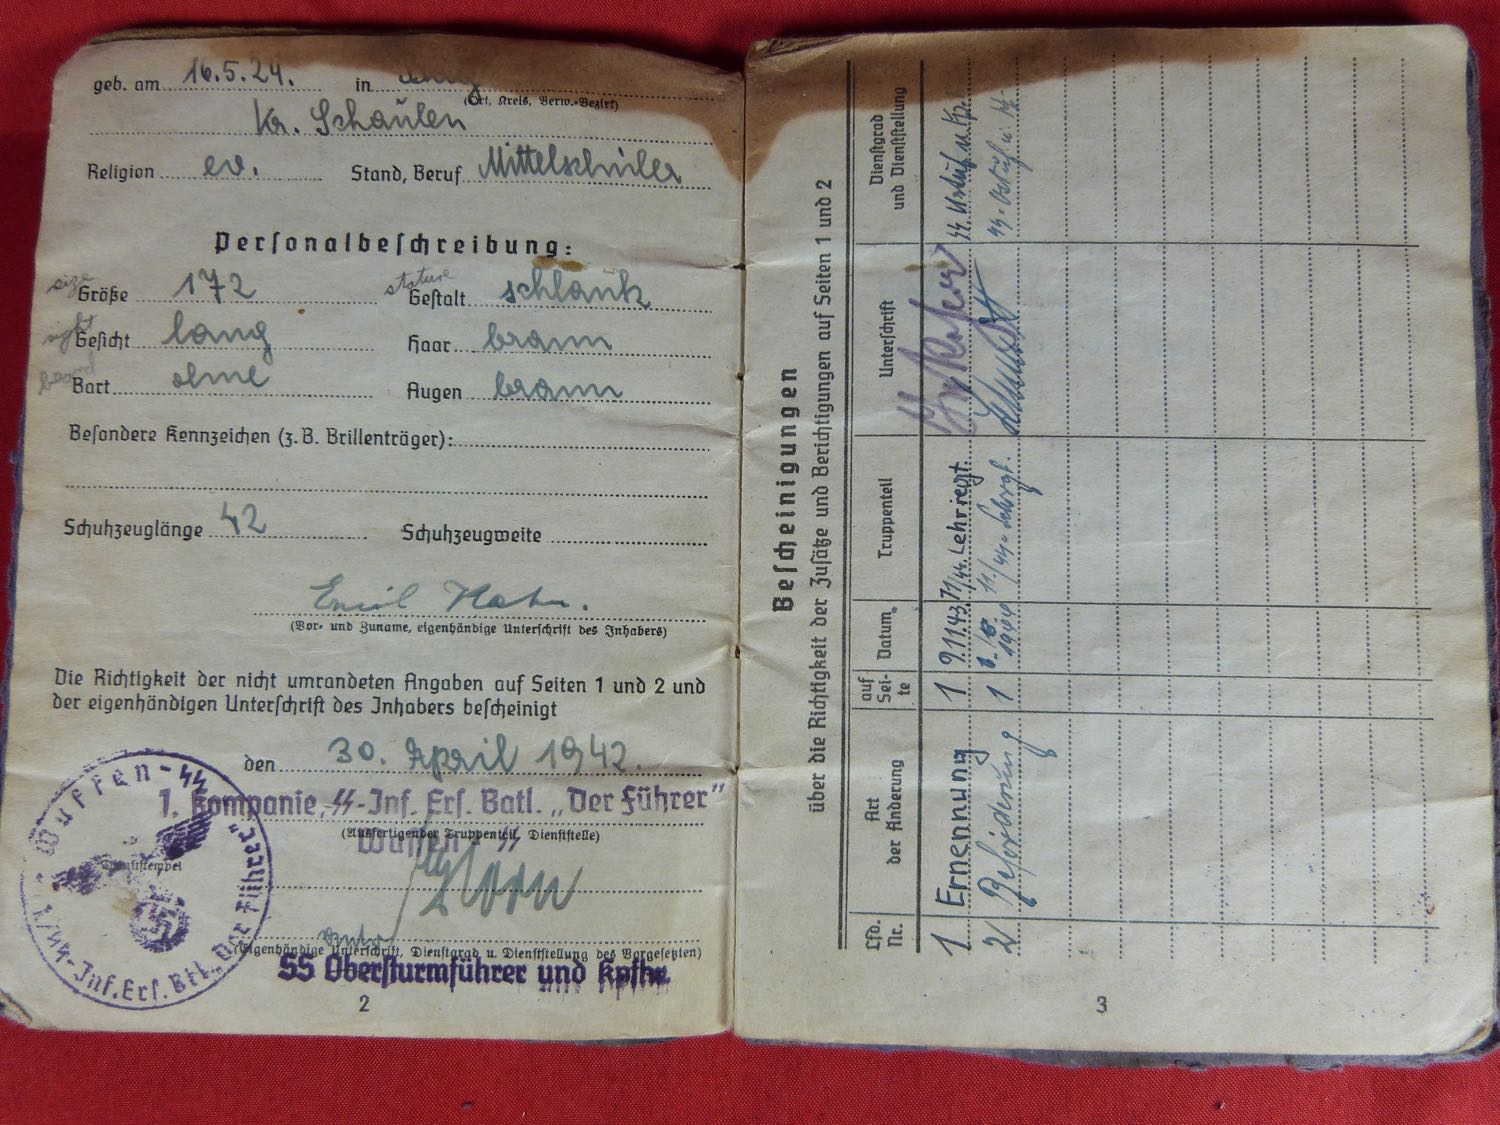 geb. am 16.5.24. in
(Ort, Kreis, Verw.-Bezirk)
Kr. Schaulen
Religion ev. Stand, Beruf Mittelschüler
Personalbeschreibung:
size Größe 172 stature Gestalt schlank
Gesicht lang Haar braun
beard Bart ohne Augen braun
Besondere Kennzeichen (z. B. Brillenträger):
Schuhzeuglänge 42 Schuhzeugweite
Emil Hahn.
(Vor- und Zuname, eigenhändige Unterschrift des Inhabers)
Die Richtigkeit der nicht umrandeten Angaben auf Seiten 1 und 2 und
der eigenhändigen Unterschrift des Inhabers bescheinigt
den 30. April 1942.
1. Kompanie, SS-Inf. Ers. Batl. „Der Führer"
(Ausfertigender Truppenteil, Dienststelle)
Waffen-SS
Dienststempel
Waffen-SS
1./SS-Inf. Ers. Btl. „Der Führer"
(Eigenhändige Unterschrift, Dienstgrad u. Dienststellung des Vorgesetzten)
SS Obersturmführer und Kpfhr.
2
Bescheinigungen
über die Richtigkeit der Zusätze und Berichtigungen auf Seiten 1 und 2
Lfd. Nr. Art der Änderung auf Sei-te Datum Truppenteil Unterschrift Dienstgrad und Dienststellung
1 Ernennung 1 9.11.43 11/SS. Lehrregt. SS. Ustuf u. Kp.
2 Beförderung 1 1944 11/SS-Lehrrgt. SS-Ostuf u.
3